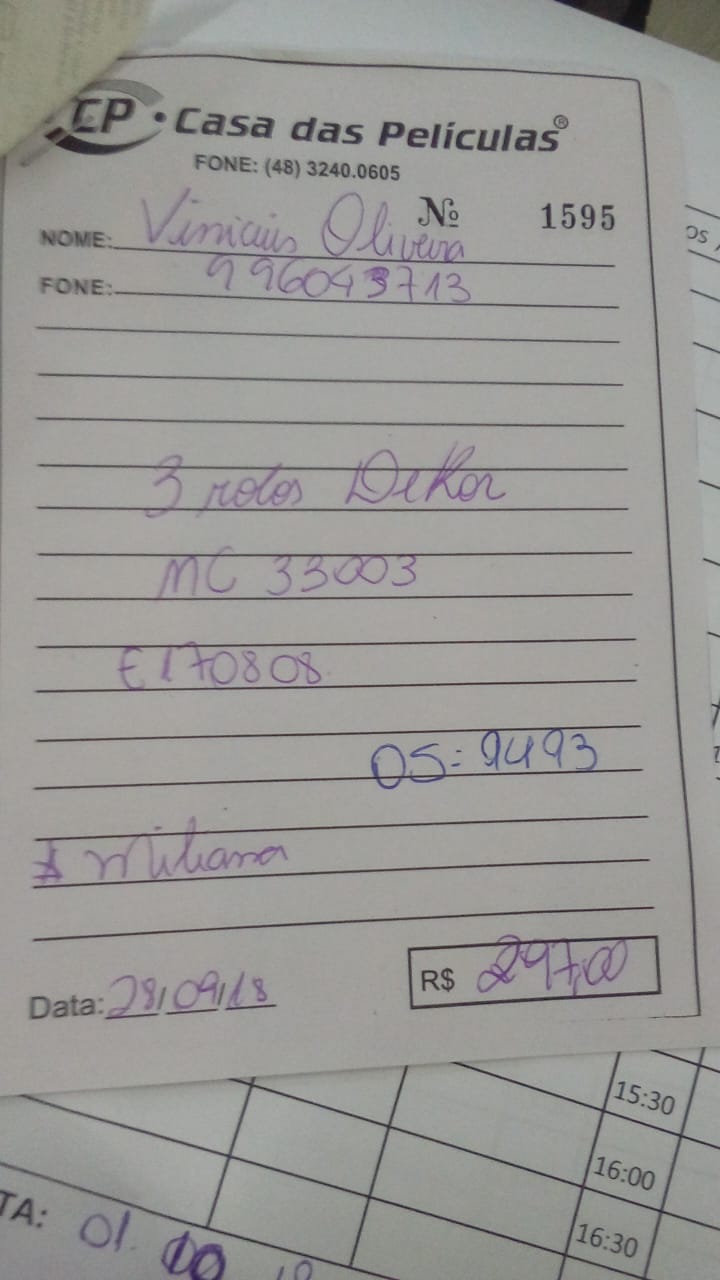 CP • Casa das Películas®
FONE: (48) 3240.0605
Nº 1595
NOME: Vinicius Oliveira
FONE: 996043713
3 rolos DeKor
MC 33003
E170808
OS: 9493
Miliana
Data: 28/09/18 R$ 297,00
os
15:30
16:00
16:30
TA: 01.